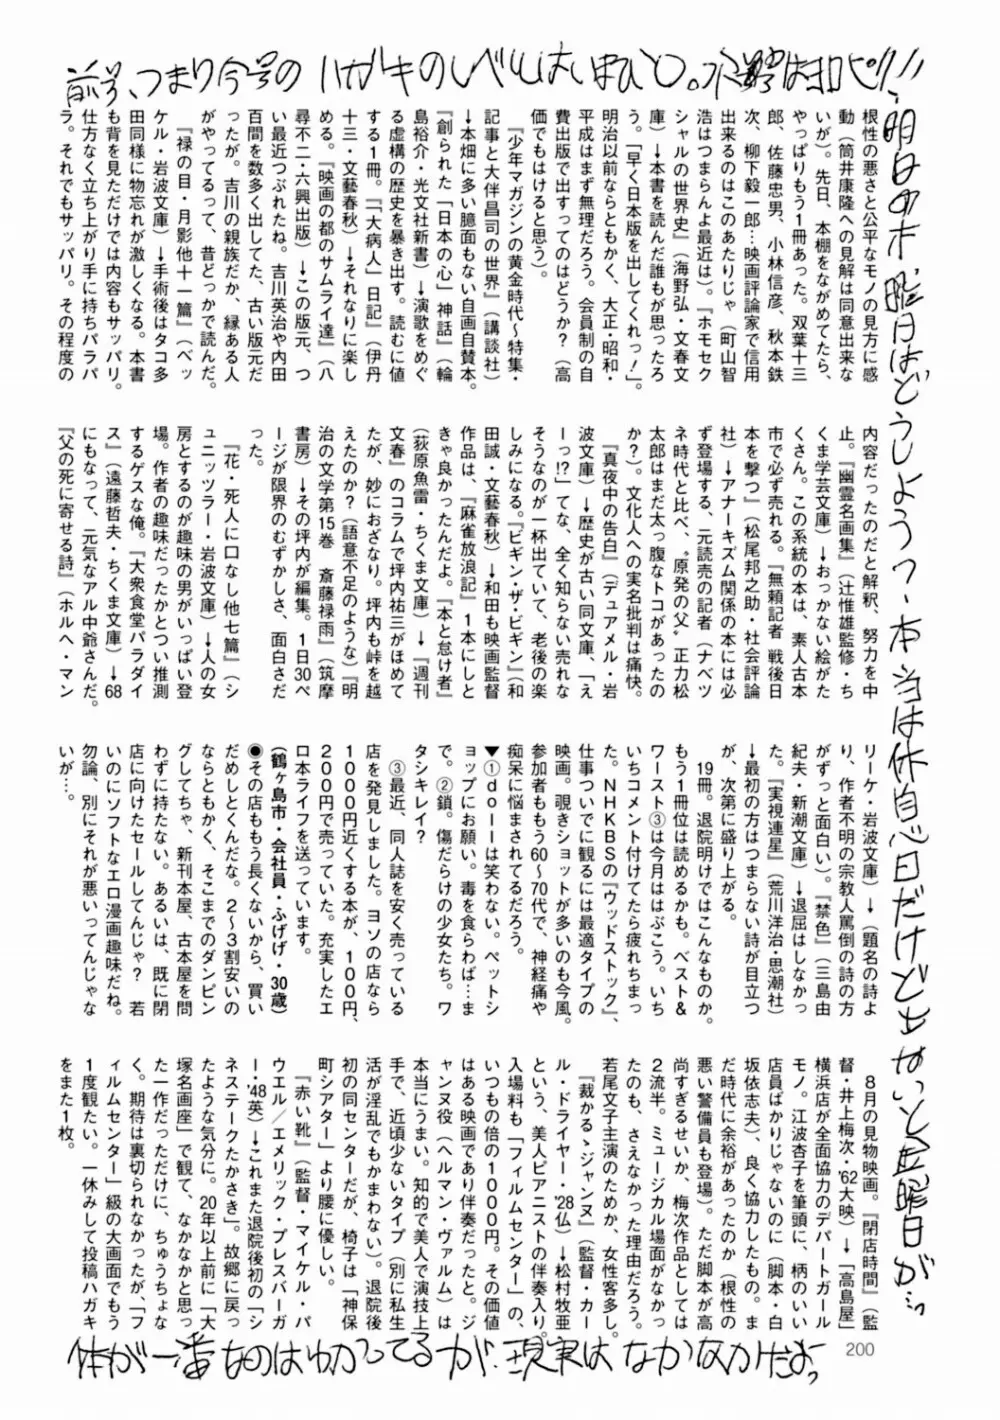 前号、つまり今号のハガキのレベルはいまひと。水野はロピリ!!
根性の悪さと公平なモノの見方に感
動(筒井康隆への見解は同意出来な
いが)。先日、本棚をながめてたら、
やっぱりもう1冊あった。双葉十三
郎、佐藤忠男、小林信彦、秋本鉄
次、柳下毅一郎…映画評論家で信用
出来るのはこのあたりじゃ(町山智
浩はつまらんよ最近は)。『ホモセク
シャルの世界史』(海野弘・文春文
庫)→本書を読んだ誰もが思ったろ
う。「早く日本版を出してくれっ!」。
明治以前ならともかく、大正・昭和・
平成はまず無理だろう。会員制の自
費出版で出すってのはどうか?(高
価でもはけると思う)。
『少年マガジンの黄金時代〜特集・
記事と大伴昌司の世界』(講談社)
→本畑に多い臆面もない自画自賛本。
『創られた「日本の心」神話』(輪
島裕介・光文社新書)→演歌をめぐ
る虚構の歴史を暴き出す。読むに値
する1冊。『「大病人」日記』(伊丹
十三・文藝春秋)→それなりに楽し
める。『映画の都のサムライ達』(八
尋不二・六興出版)→この版元、つ
い最近つぶれたね。吉川英治や内田
百閒を数多く出してた、古い版元だ
ったが。吉川の親族だか、縁ある人
がやってるって、昔どっかで読んだ。
『禄の目・月影他十一篇』(ベッ
ケル・岩波文庫)→手術後はタコ多
田同様に物忘れが激しくなる。本書
も背を見ただけでは内容もサッパリ。
仕方なく立ち上がり手に持ちパラパ
ラ。それでもサッパリ。その程度の
内容だったのだと解釈、努力を中
止。『幽霊名画集』(辻惟雄監修・ち
くま学芸文庫)→おっかない絵がた
くさん。この系統の本は、素人古本
市で必ず売れる。『無頼記者 戦後日
本を撃つ』(松尾邦之助・社会評論
社)→アナーキズム関係の本には必
ず登場する、元読売の記者(ナベツ
ネ時代と比べ、〝原発の父〟正力松
太郎はまだ太っ腹なトコがあったの
か?)。文化人への実名批判は痛快。
『真夜中の告白』(デュアメル・岩
波文庫)→歴史が古い同文庫、「え
ーっ!?」てな、全く知らない売れな
そうなのが一杯出ていて、老後の楽
しみになる。『ビギン・ザ・ビギン』(和
田誠・文藝春秋)→和田も映画監督
作品は、『麻雀放浪記』1本にしと
きゃ良かったんだよ。『本と怠け者』
(荻原魚雷・ちくま文庫)→『週刊
文春』のコラムで坪内祐三がほめて
たが、妙におざなり。坪内も峠を越
えたのか?(語意不足のような)『明
治の文学第15巻 斎藤禄雨』(筑摩
書房)→その坪内が編集。1日30ペ
ージが限界のむずかしさ、面白さだ
った。
『花・死人に口なし他七篇』(シ
ュニッツラー・岩波文庫)→人の女
房とするのが趣味の男がいっぱい登
場。作者の趣味だったかとつい推測
するゲスな俺。『大衆食堂パラダイ
ス』(遠藤哲夫・ちくま文庫)→68
にもなって、元気なアル中爺さんだ。
『父の死に寄せる詩』(ホルヘ・マン
リーケ・岩波文庫)→(題名の詩よ
り、作者不明の宗教人罵倒の詩の方
がずっと面白い)。『禁色』(三島由
紀夫・新潮文庫)→退屈はしなかっ
た。『実視連星』(荒川洋治・思潮社)
→最初の方はつまらない詩が目立つ
が、次第に盛り上がる。
19冊。退院明けではこんなものか。
もう1冊位は読めるかも。ベスト&
ワースト③は今月ははぶこう。いち
いちコメント付けてたら疲れちまっ
た。NHKBSの『ウッドストック』、
仕事ついでに観るには最適タイプの
映画。覗きショットが多いのも今風。
参加者ももう60〜70代で、神経痛や
痴呆に悩まされてるだろう。
▼①dollは笑わない。ペットシ
ョップにお願い。毒を食らわば…ま
で。②鎖。傷だらけの少女たち。ワ
タシキレイ?
③最近、同人誌を安く売っている
店を発見しました。ヨソの店なら
1000円近くする本が、100円、
200円で売っていた。充実したエ
ロ本ライフを送っています。
(鶴ヶ島市・会社員・ふげげ・30歳)
◉その店ももう長くないから、買い
だめしとくんだな。2〜3割安いの
ならともかく、そこまでのダンピン
グしてちゃ、新刊本屋、古本屋を問
わずに持たない。あるいは、既に閉
店に向けたセールしてんじゃ? 若
いのにソフトなエロ漫画趣味だね。
勿論、別にそれが悪いってんじゃな
いが…。
8月の見物映画。『閉店時間』(監
督・井上梅次・'62大映)→「高島屋」
横浜店が全面協力のデパートガール
モノ。江波杏子を筆頭に、柄のいい
店員ばかりじゃないのに(脚本・白
坂依志夫)、良く協力したもの。ま
だ時代に余裕があったのか(根性の
悪い警備員も登場)。ただ脚本が高
尚すぎるせいか、梅次作品としては
2流半。ミュージカル場面がなかっ
たのも、さえなかった理由だろう。
若尾文子主演のためか、女性客多し。
『裁かるゝジャンヌ』(監督・カー
ル・ドライヤー・'28仏)→松村牧亜
という、美人ピアニストの伴奏入り。
入場料も「フィルムセンター」の、
いつもの倍の1000円。その価値
はある映画であり伴奏だったと。ジ
ャンヌ役(ヘルマン・ヴァルム)は
本当にうまい。知的で美人で演技上
手で、近頃少ないタイプ(別に私生
活が淫乱でもかまわない)。退院後
初の同センターだが、椅子は「神保
町シアター」より腰に優しい。
『赤い靴』(監督・マイケル・パ
ウエル/エメリック・プレスバーガ
ー・'48英)→これまた退院後初の「シ
ネステークたかさき」。故郷に戻っ
たような気分に。20年以上前に「大
塚名画座」で観て、なかなかと思っ
た一作だっただけに、ちゅうちょな
く。期待は裏切られなかったが、「フ
ィルムセンター」級の大画面でもう
1度観たい。一休みして投稿ハガキ
をまた1枚。
明日の木曜日はどうしよう?本当は休息日だけどもやいと金曜日が…
体が一番なのはわかってるが、現実はなかなかだよっ
200